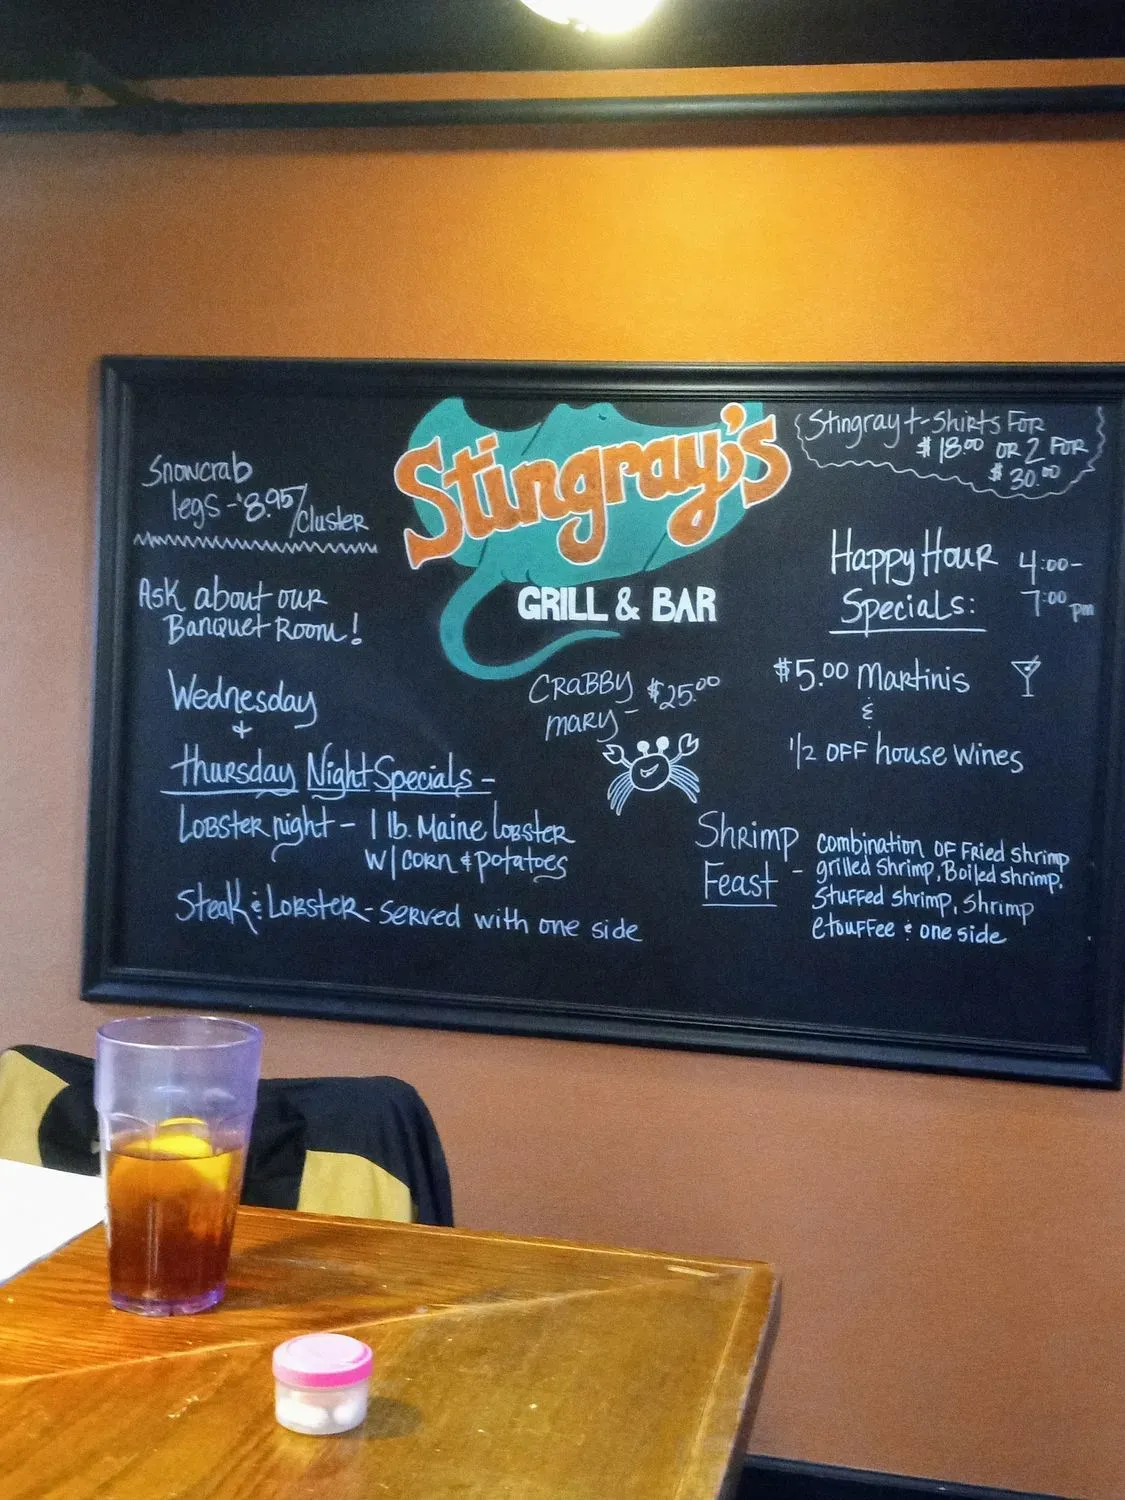 Stingray's
GRILL & BAR
Snowcrab
legs - $8.95/Cluster
Ask about our
Banquet Room!
Wednesday
&
Thursday Night Specials -
Lobster night - 1 lb. Maine lobster
w/ corn & potatoes
Steak & Lobster - Served with one side
CRABBY
MARY - $25.00
Stingray t-shirts For
$18.00 OR 2 FOR
$30.00
Happy Hour 4:00-
Specials: 7:00 pm
$5.00 Martinis
&
1/2 OFF house wines
Shrimp
Feast -
combination OF Fried shrimp
grilled shrimp, Boiled shrimp,
Stuffed shrimp, Shrimp
etouffee & one side